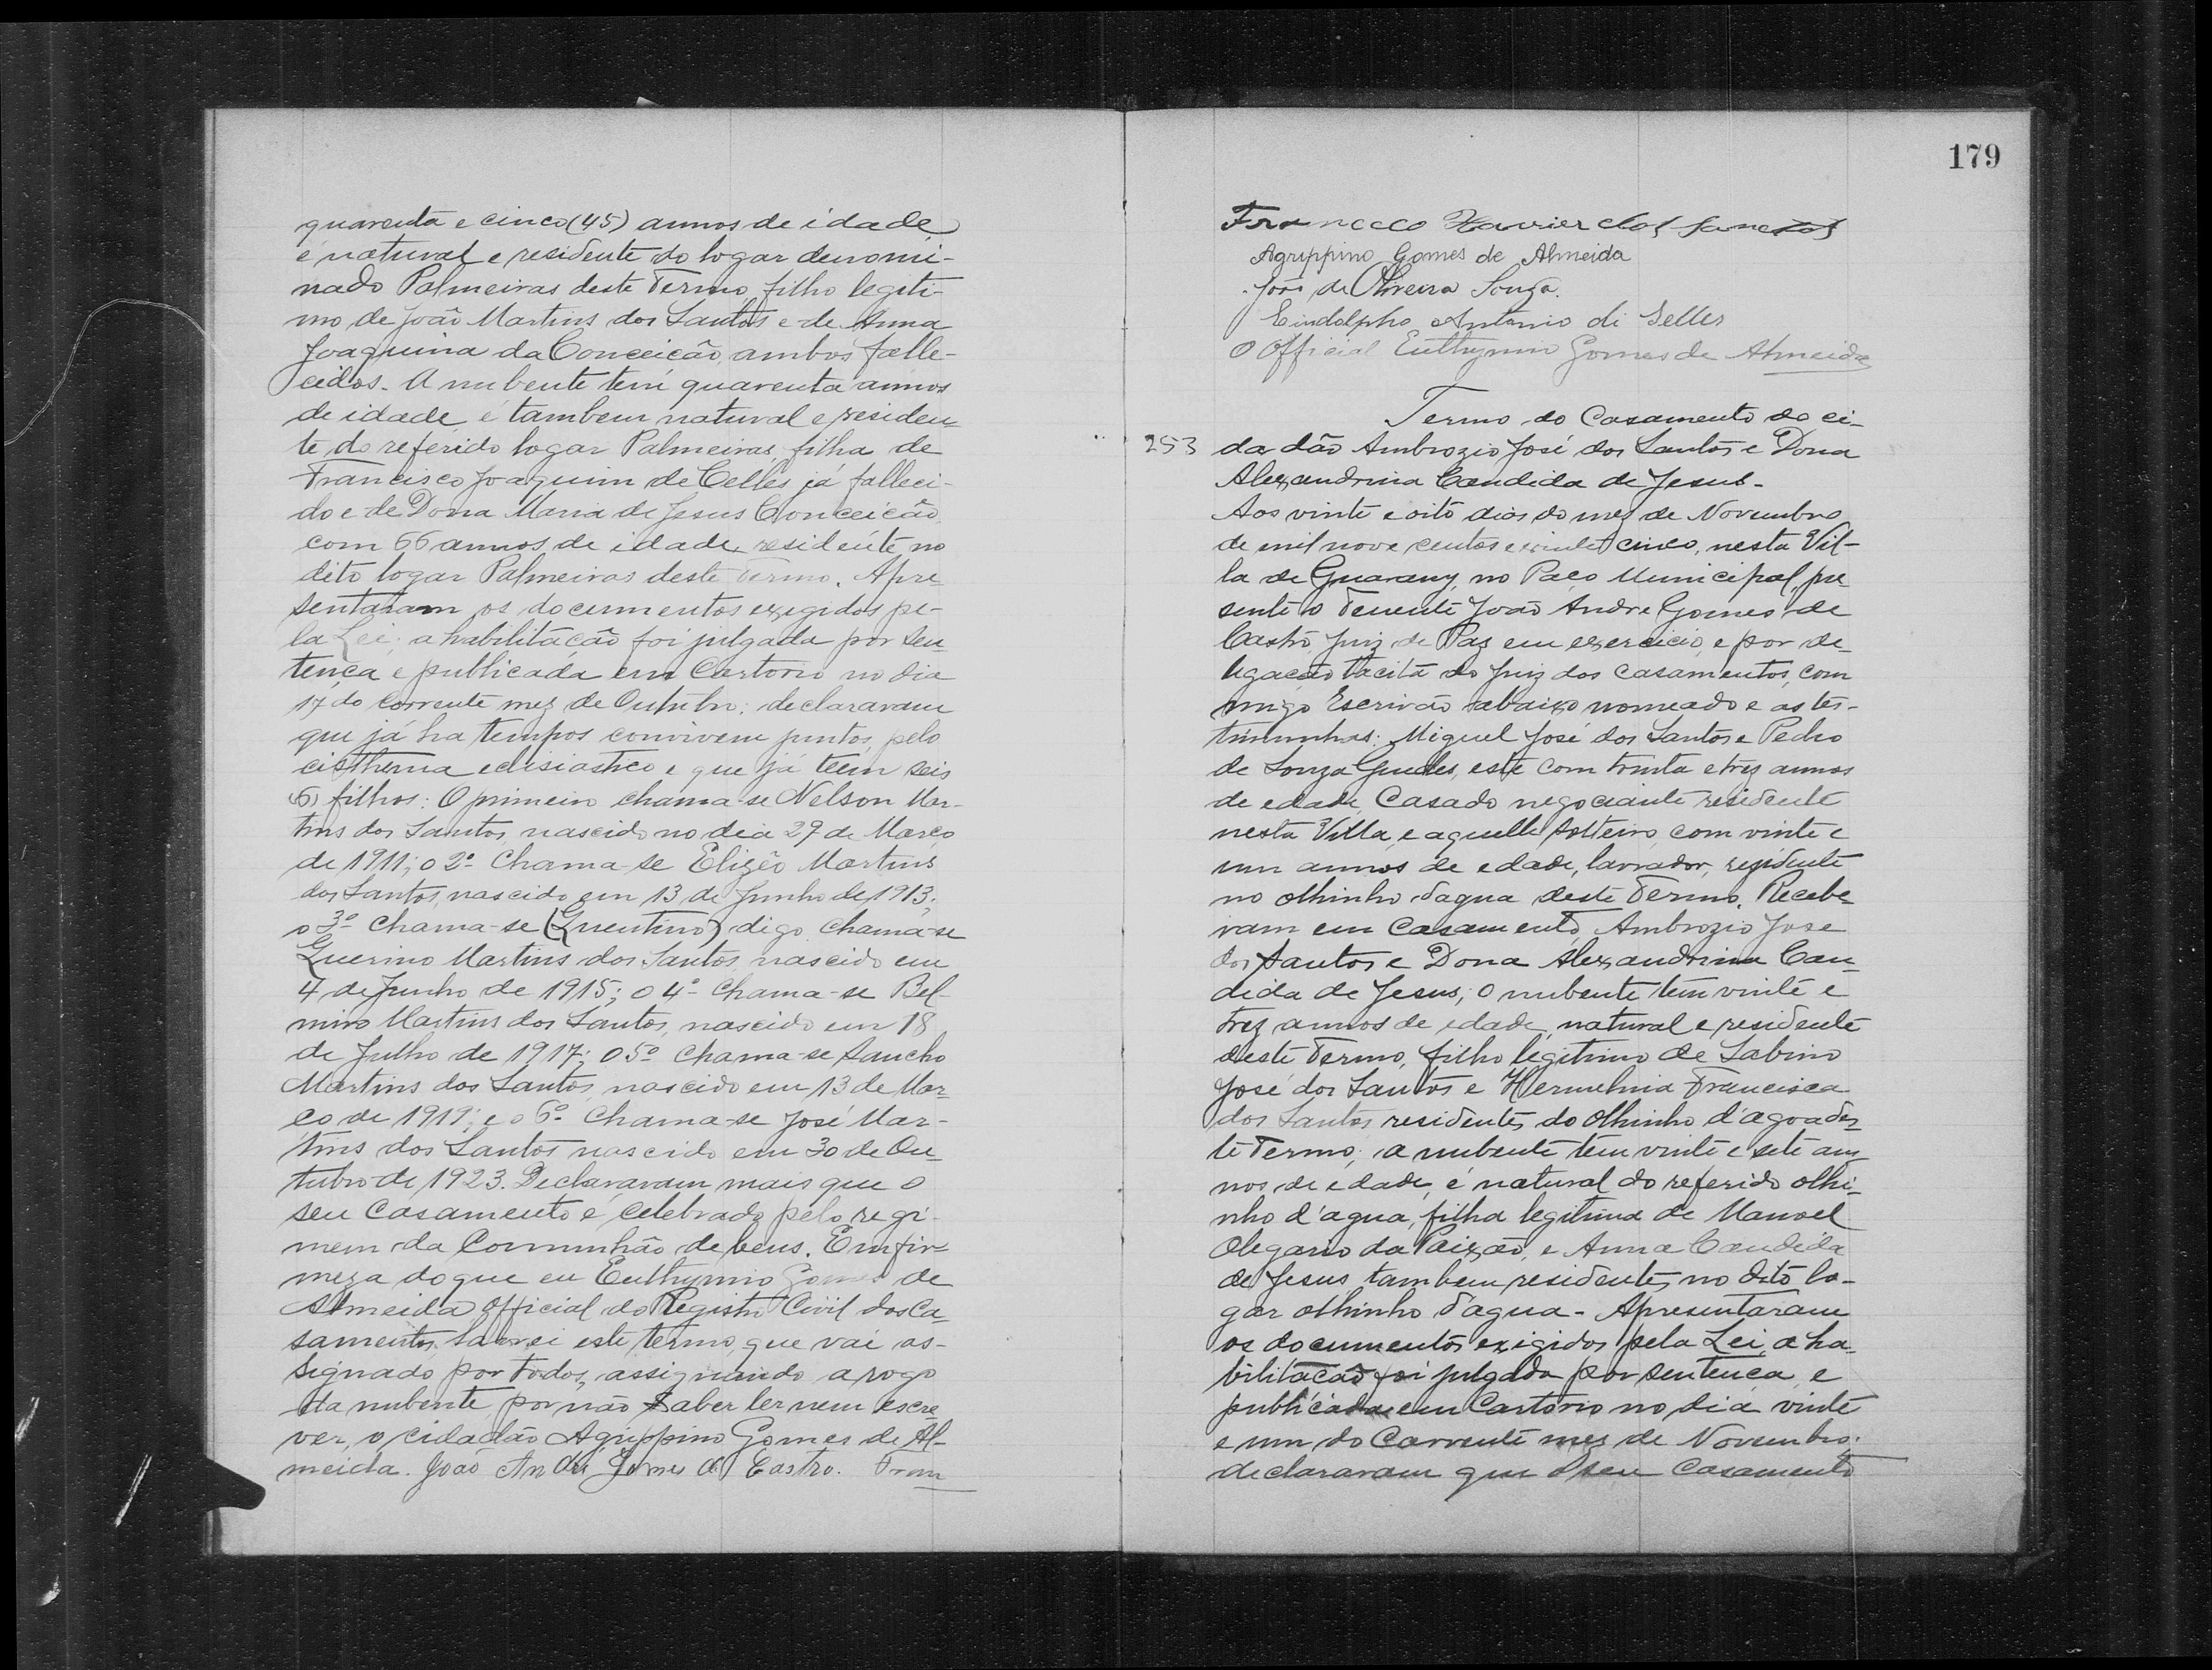 quarenta e cinco (45) annos de idade
é natural e residente do logar denomi-
nado Palmeiras deste Termo, filho legiti-
mo de João Martins dos Santos e de Anna
Joaquina da Conceição, ambos falle-
cidos. A nubente tem quarenta annos
de idade, é tambem natural e residen-
te do referido logar Palmeiras, filha de
Francisco Joaquim de Celles já falleci-
do e de Dona Maria de Jesus Conceição,
com 66 annos de idade, residente no
dito logar Palmeiras deste Termo. Apre-
sentaram os documentos exegidos pe-
la Lei; a habilitação foi julgada por sen
tença e publicada em Cartorio no dia
17 do corrente mez de Outubro: declararam
que já ha tempos convivem juntos, pelo
cisthema eclisiastico e que já teem seis
(6) filhos: O primeiro chama-se Nelson Mar-
tins dos Santos, nascido no dia 29 de Março
de 1911; o 2º chama-se Elizêo Martins
dos Santos, nascido em 13 de Junho de 1913;
o 3º chama-se (Quentino) digo chama-se
Querino Martins dos Santos, nascido em
4 de Junho de 1915; o 4º chama-se Bel-
miro Martins dos Santos, nascido em 18
de Julho de 1917; o 5º chama-se Sancho
Martins dos Santos, nascido em 13 de Mar-
ço de 1919; e o 6º chama-se José Mar-
tins dos Santos nascido em 30 de Ou-
tubro de 1923. Declararam mais que o
seu casamento é celebrado pelo regi-
mem da Communhão de bens. Em fir-
meza do que eu Euthymio Gomes de
Almeida Official do Registro Civil dos Ca-
samentos lavrei este termo, que vai as-
signado por todos, assignando a rogo
da nubente, por não saber ler nem escre-
ver, o cidadão Agrippino Gomes de Al-
meida. João André Gomes de Castro. Fran
179
Francisco Xavier dos Santos
Agrippino Gomes de Almeida
João de Oliveira Souza.
Lindolpho Antonio di Selles
O Official Euthymio Gomes de Almeida
Termo do Casamento do ci-
253 dadão Ambrozio José dos Santos e Dona
Alexandrina Candida de Jesus.
Aos vinte e oito dias do mez de Novembro
de mil nove centos e vinte cinco, nesta Vil-
la de Guarany, no Paço Municipal, pre
sente o Tenente João Andre Gomes de
Castro, Juiz de Paz em exercicio, e por de-
legação tacita do Juiz dos casamentos, com
migo Escrivão abaixo nomeado e as tes-
timunhas: Miguel José dos Santos e Pedro
de Souza Guedes, este com trinta e trez annos
de edade Casado negociante residente
nesta Villa, e aquelle solteiro, com vinte e
um annos de edade, lavrador, residente
no olhinho dagua deste Termo. Recebe-
ram em casamento Ambrozio Jose
dos Santos e Dona Alexandrina Can-
dida de Jesus; O nubente tem vinte e
trez annos de edade, natural e residente
deste Termo, filho legitimo de Sabino
José dos Santos e Hermelina Francisca
dos Santos residentes do olhinho d'agoa des-
te Termo; a nubente tem vinte e sete an-
nos de edade, é natural do referido olhi-
nho d'agua, filha legitima de Manoel
Olegario da Paixão, e Anna Candida
de Jesus tambem residentes, no dito lo-
gar olhinho d'agua - Apresentaram
os documentos exigidos pela Lei, a ha-
bilitação foi julgada por sentença, e
publicada em Cartorio no dia vinte
e um do Corrente mez de Novembro:
declararam que o seu Casamento